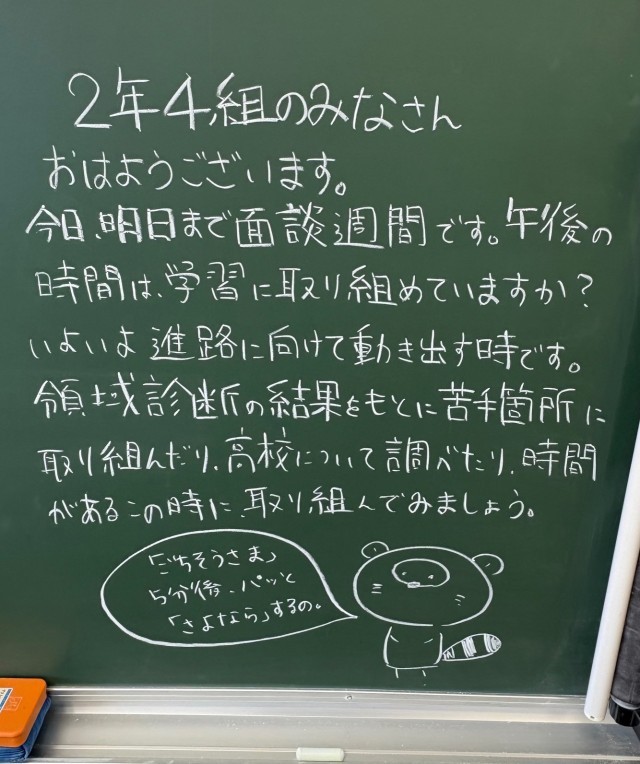 2年4組のみなさん
おはようございます。
今日、明日まで面談週間です。午後の
時間は、学習に取り組めていますか?
いよいよ進路に向けて動き出す時です。
領域診断の結果をもとに苦手箇所に
取り組んだり、高校について調べたり、時間
があるこの時に取り組んでみましょう。
「ごちそうさま」
5分後、パッと
「さよなら」するの。